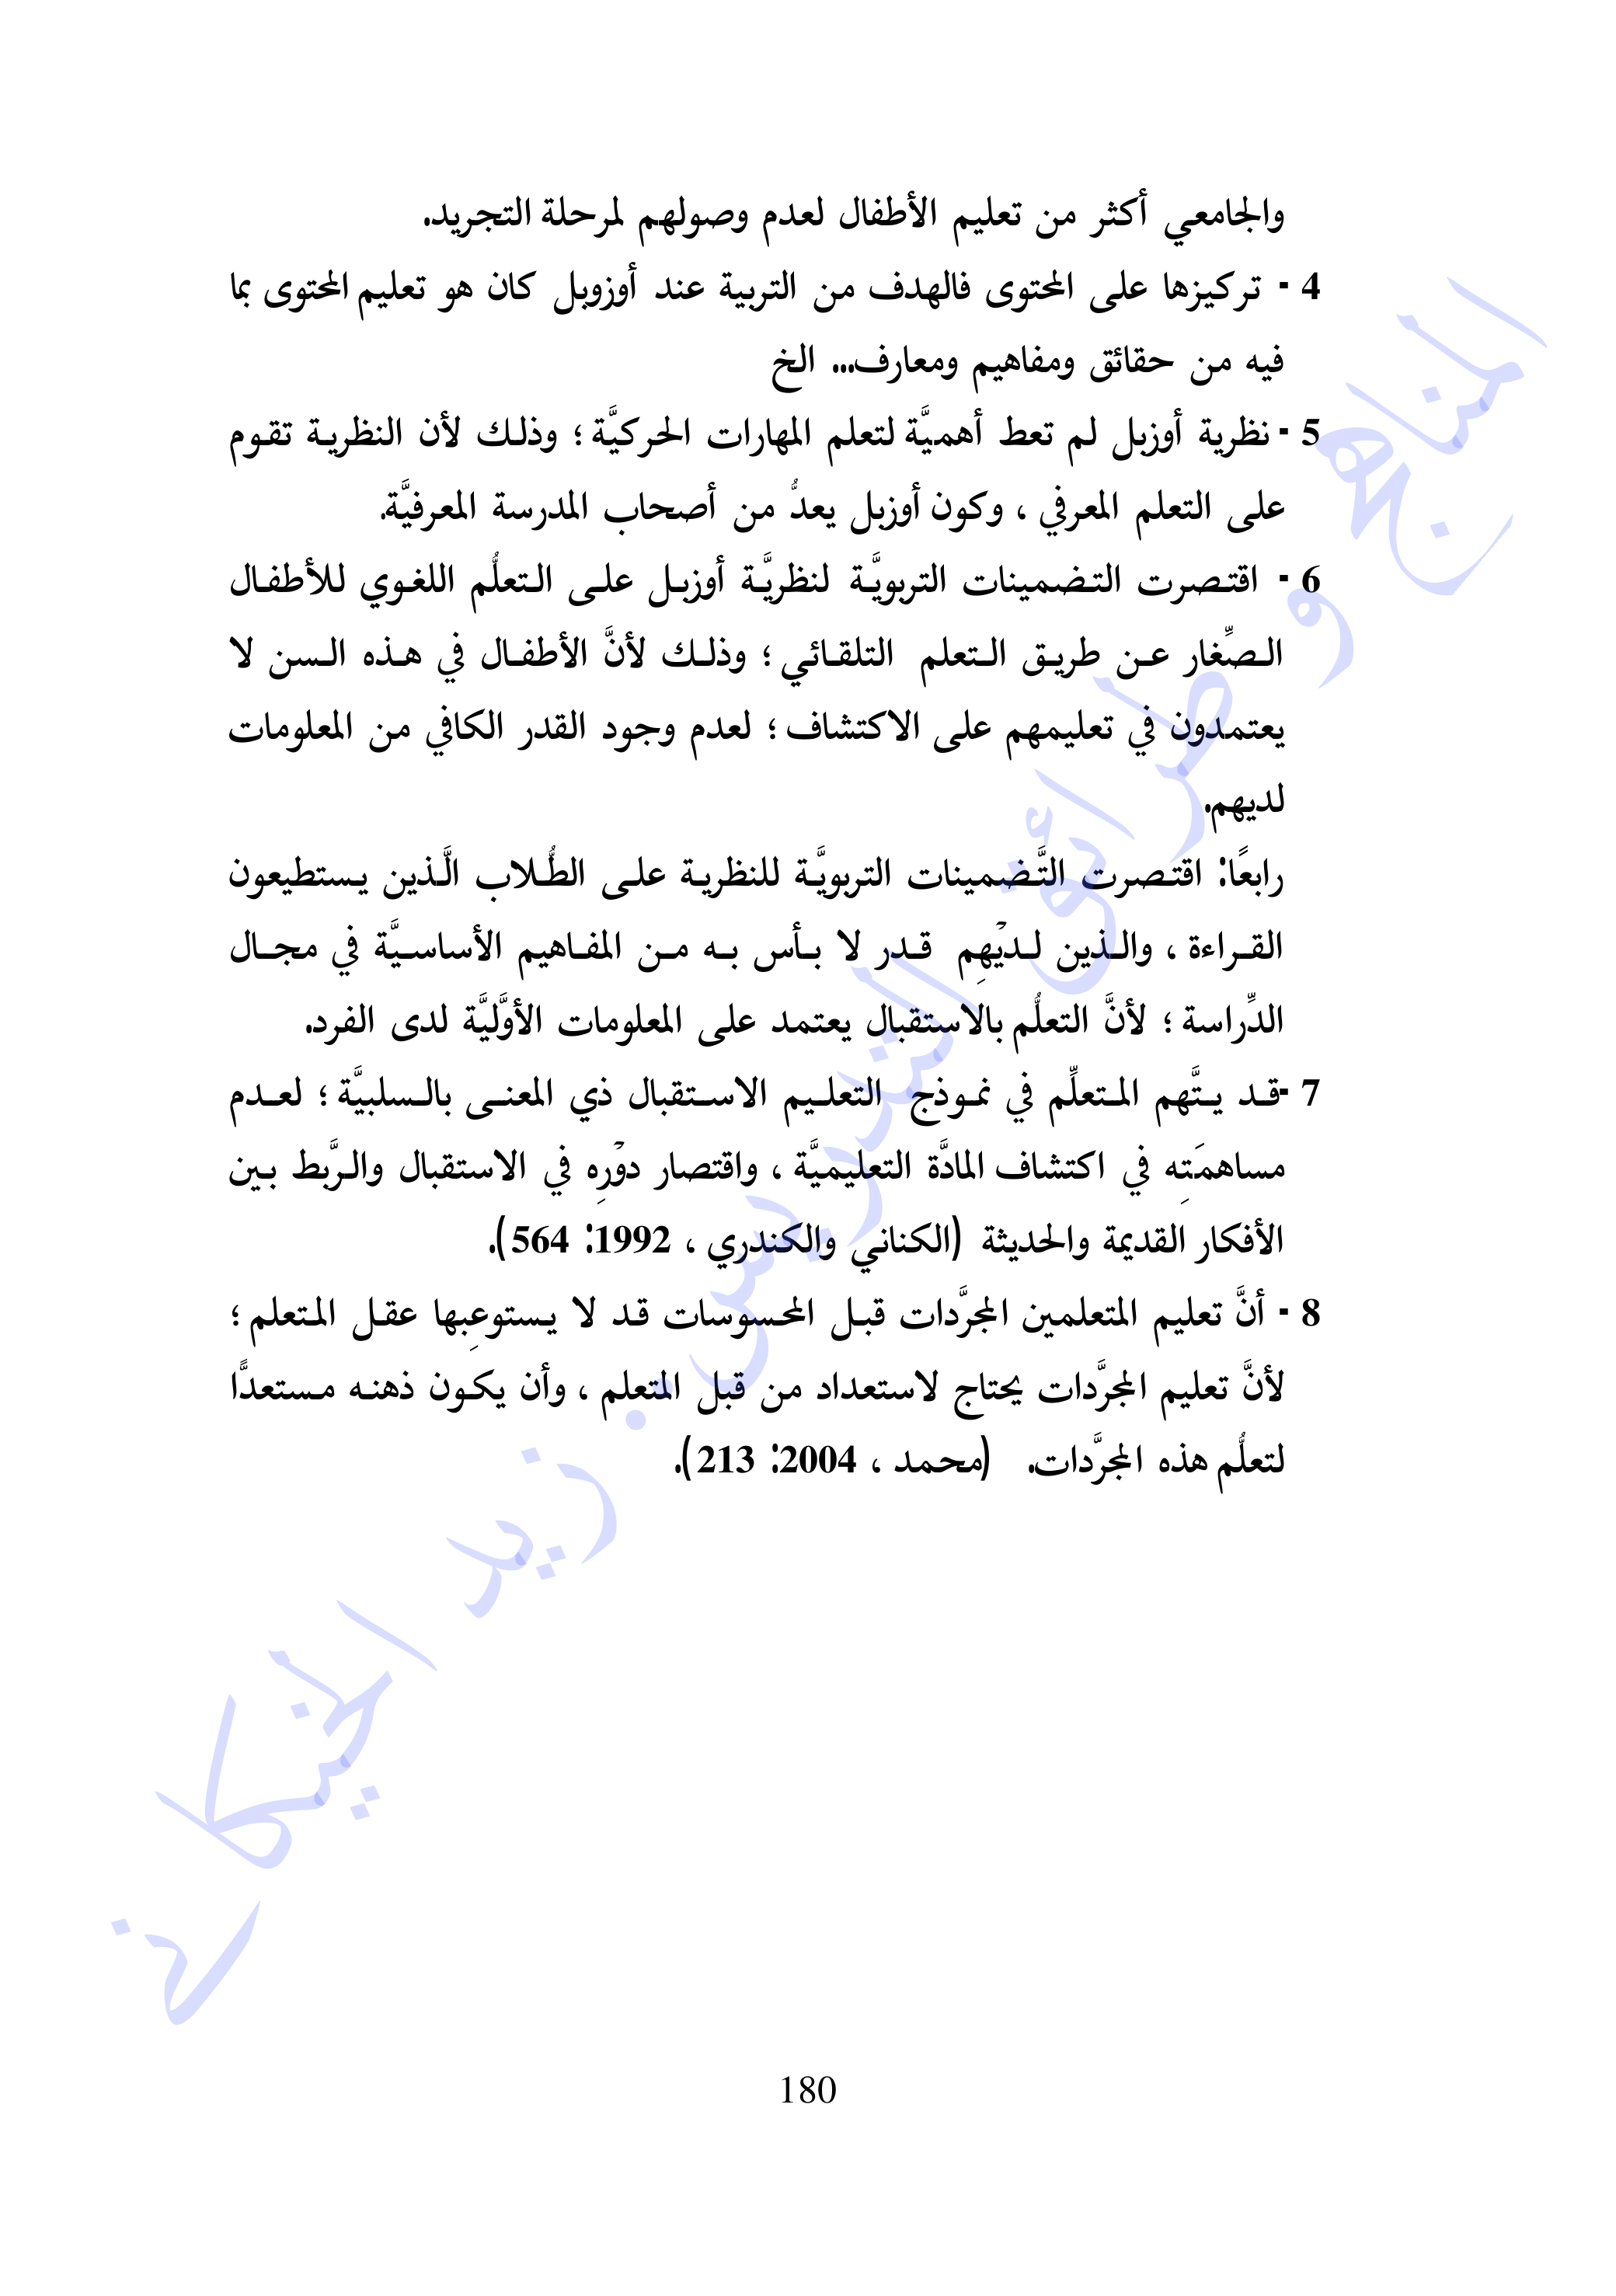 والجامعي أكثر من تعليم الأطفال لعدم وصولهم لمرحلة التجريد.
4 - تركيزها على المحتوى فالهدف من التربية عند أوزوبل كان هو تعليم المحتوى بما
فيه من حقائق ومفاهيم ومعارف... الخ
5 - نظرية أوزبل لم تعط أهميَّة لتعلم المهارات الحركيَّة ؛ وذلك لأن النظرية تقوم
على التعلم المعرفي ، وكون أوزبل يعدُّ من أصحاب المدرسة المعرفيَّة.
6 - اقتصرت التضمينات التربويَّة لنظريَّة أوزبل على التعلُّم اللغوي للأطفال
الصِّغار عن طريق التعلم التلقائي ؛ وذلك لأنَّ الأطفال في هذه السن لا
يعتمدون في تعليمهم على الاكتشاف ؛ لعدم وجود القدر الكافي من المعلومات
لديهم.
رابعًا: اقتصرت التَّضمينات التربويَّة للنظرية على الطُّلاب الَّذين يستطيعون
القراءة ، والذين لديْهِم قدر لا بأس به من المفاهيم الأساسيَّة في مجال
الدِّراسة ؛ لأنَّ التعلُّم بالاستقبال يعتمد على المعلومات الأوَّليَّة لدى الفرد.
7 -قد يتَّهم المتعلِّم في نموذج التعليم الاستقبال ذي المعنى بالسلبيَّة ؛ لعدم
مساهمَتِه في اكتشاف المادَّة التعليميَّة ، واقتصار دوْرِه في الاستقبال والرَّبط بين
الأفكار القديمة والحديثة (الكناني والكندري ، 1992: 564).
8 - أنَّ تعليم المتعلمين المجرَّدات قبل المحسوسات قد لا يستوعِبها عقل المتعلم ؛
لأنَّ تعليم المجرَّدات يحتاج لاستعداد من قبل المتعلم ، وأن يكون ذهنه مستعدًّا
لتعلُّم هذه المجرَّدات. (محمد ، 2004: 213).
المناهج وطرائق التدريس . زيد الخيكاني
180